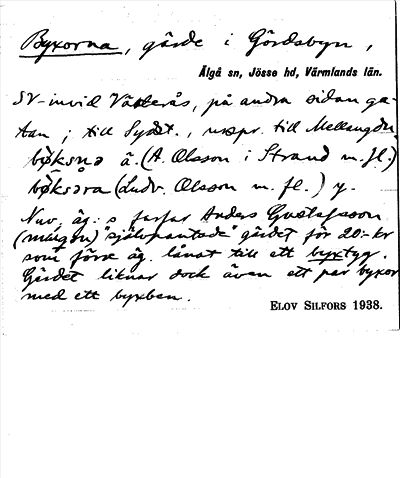 Byxorna, gärde i Gördsbyn,
Älgå sn, Jösse hd, Värmlands län.
SV-invid Västerås, på andra sidan ga-
tan; till Sydöst., urspr. till Mellangården
(A. Olsson i Strand m.fl.)
(Ludv. Olsson m. fl.) y.
Nuv. äg:s farfar Anders Gustafsson
(mågen) "självpantade" gärdet för 20:- kr
som förre äg. lånat till ett byxtyg.
Gärdet liknar dock även ett par byxor
med ett byxben.
ELOV SILFORS 1938.